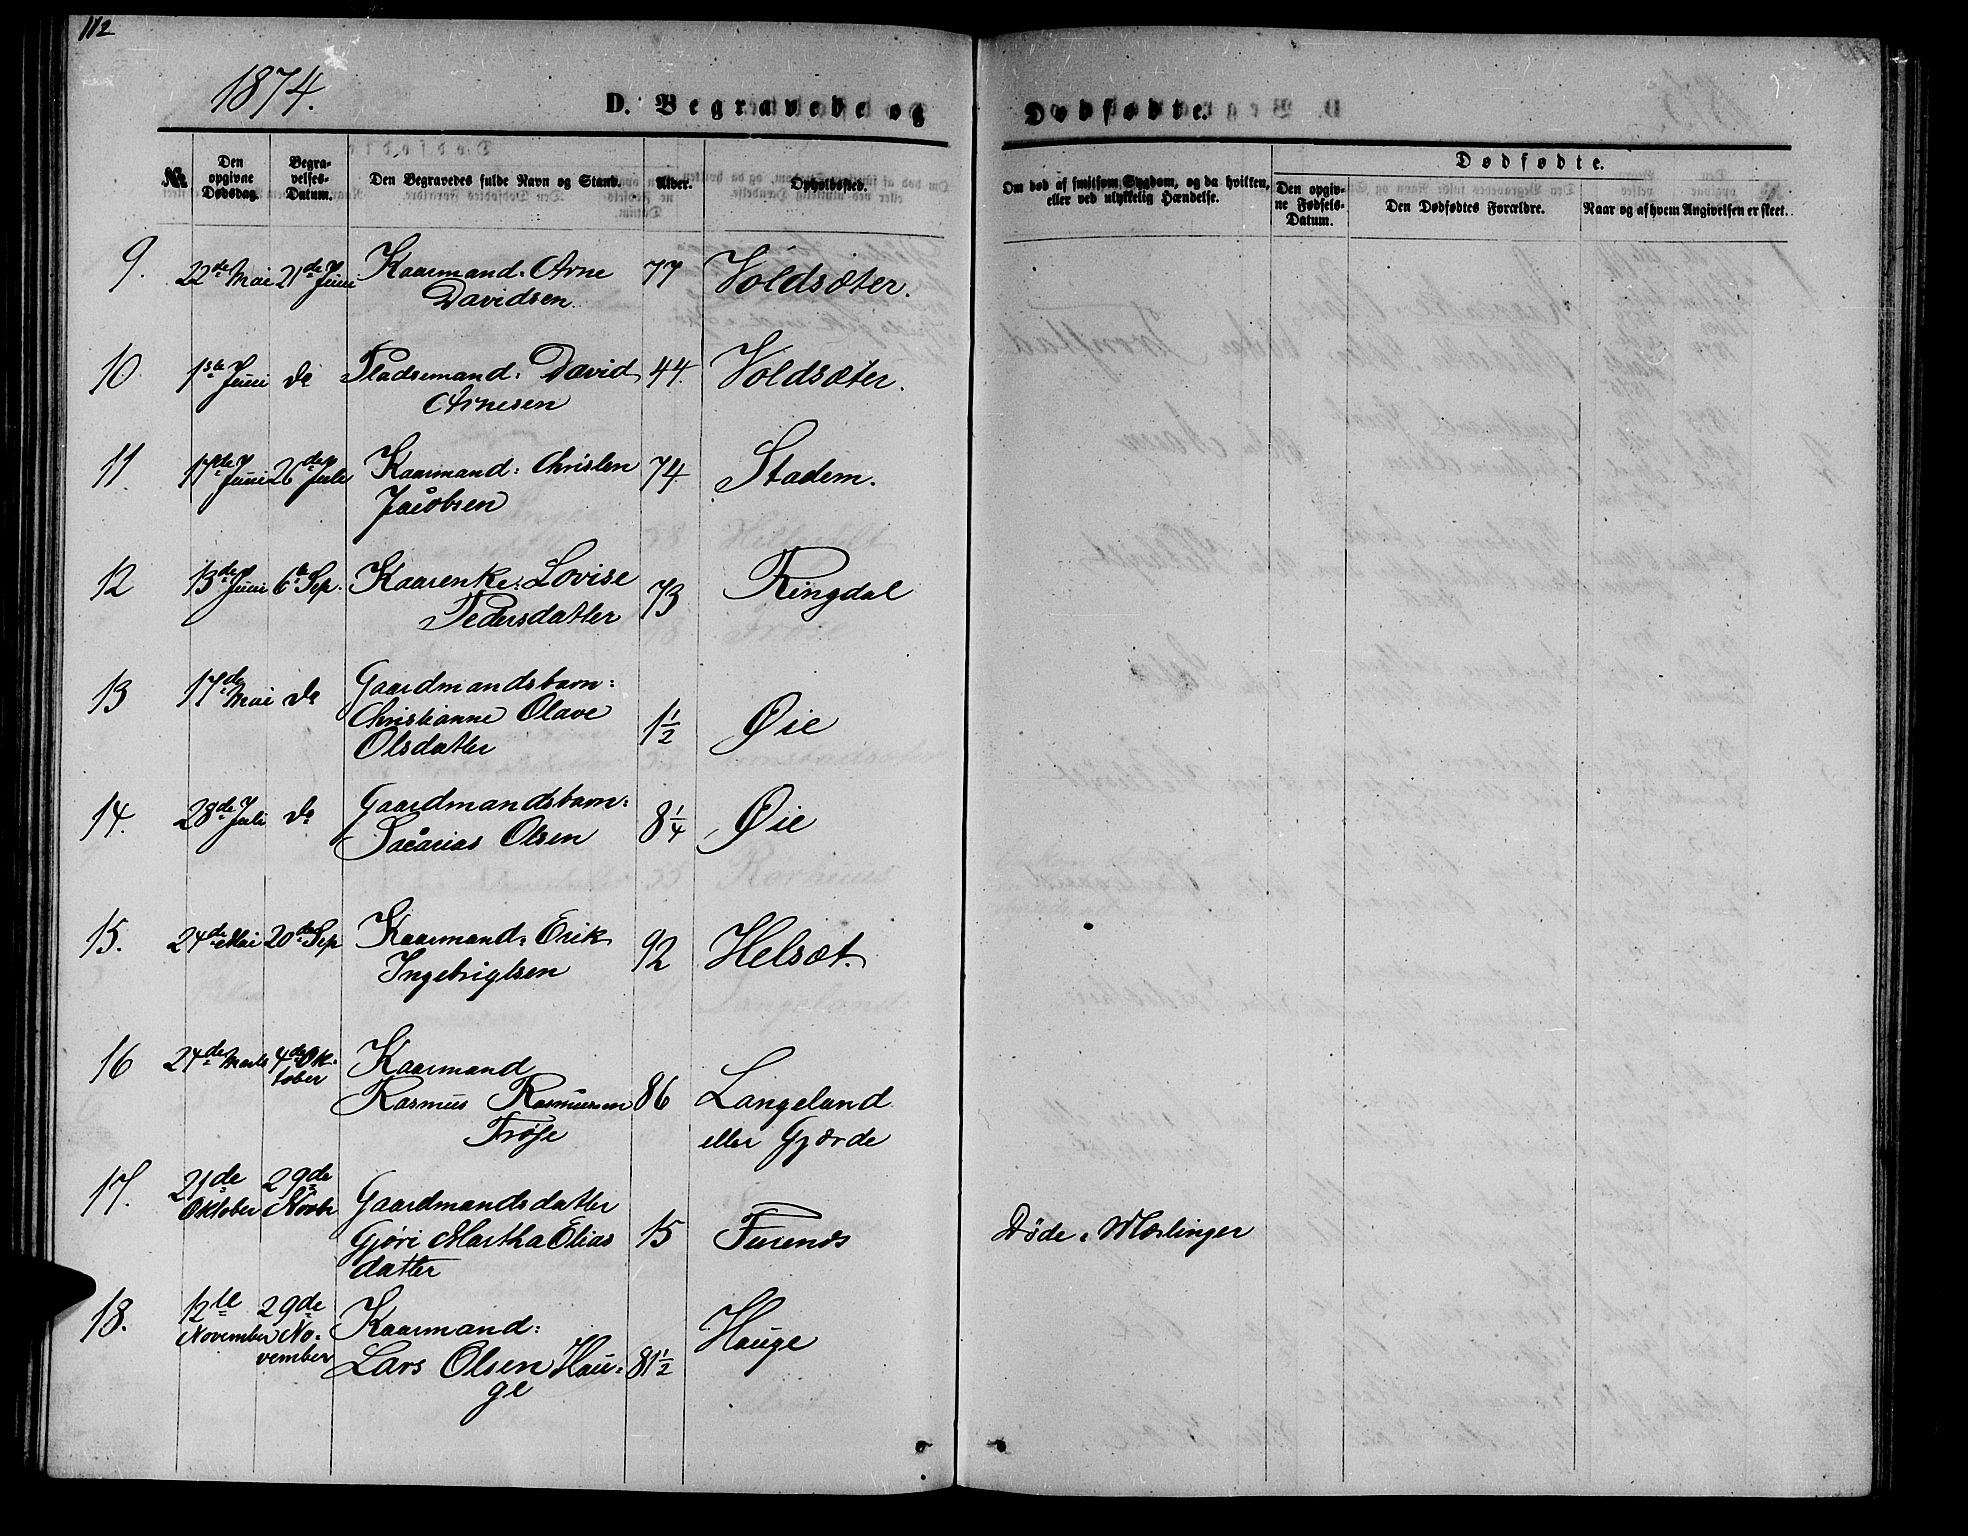 112
1874.
D. Begravede og Dødfødte.
№
Den opgivne Dødsdag.
Begravelses-Datum.
Den Begravedes fulde Navn og Stand.
Alder.
Opholdssted.
Om død af smitsom Sygdom, og da hvilken, eller ved ulykkelig Hændelse.
Dødfødte.
Den opgivne Fødsels-Datum.
Den Dødfødtes Forældre.
Naar og af hvem Angivelsen er skeet.
9. 22de Mai 21de Juni Kaarmand: Arne 77 Voldsæter.
Davidsen
10. 1ste Juni do Pladsemand: David 44. Voldsæter.
Arnesen
11. 17de Juni 26de Juli Kaarmand: Christen 74 Stadem.
Jacobsen
12 13de Juni 6te Sep. Kaarenke: Lovise 73 Ringdal
Pedersdatter
13 17de Mai do Gaardmandsbarn:
Christianne Olave 1½ Øie
Olsdatter
14. 28de Juli do Gaardmandsbarn: 8¼ Øie
Sacarias Olsen
15. 24de Mai 20de Sep Kaarmand: Erik 92 Helsæt.
Ingebrigtsen
16 24de Marts 4de Oktober Kaarmand
Rasmus Rasmussen 86 Langeland
Frøse eller Gjærde
17. 21de Oktober 29de Novbr Gaardmandsdatter
Gjøri Martha Elias 15 Furenes Døde i Mæslinger
datter
18. 12te November 29de November Kaarmand: Hauge
Lars Olsen Hau- 81½
ge